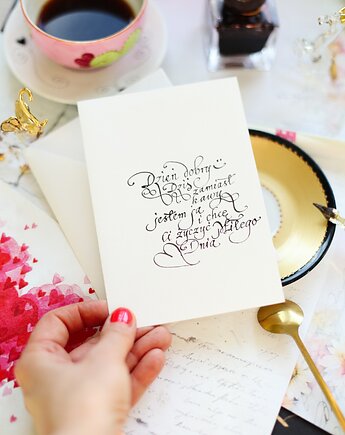 Dzień dobry
Dziś zamiast
kawy
jestem ja
i chcę
Ci życzyć Miłego
Dnia